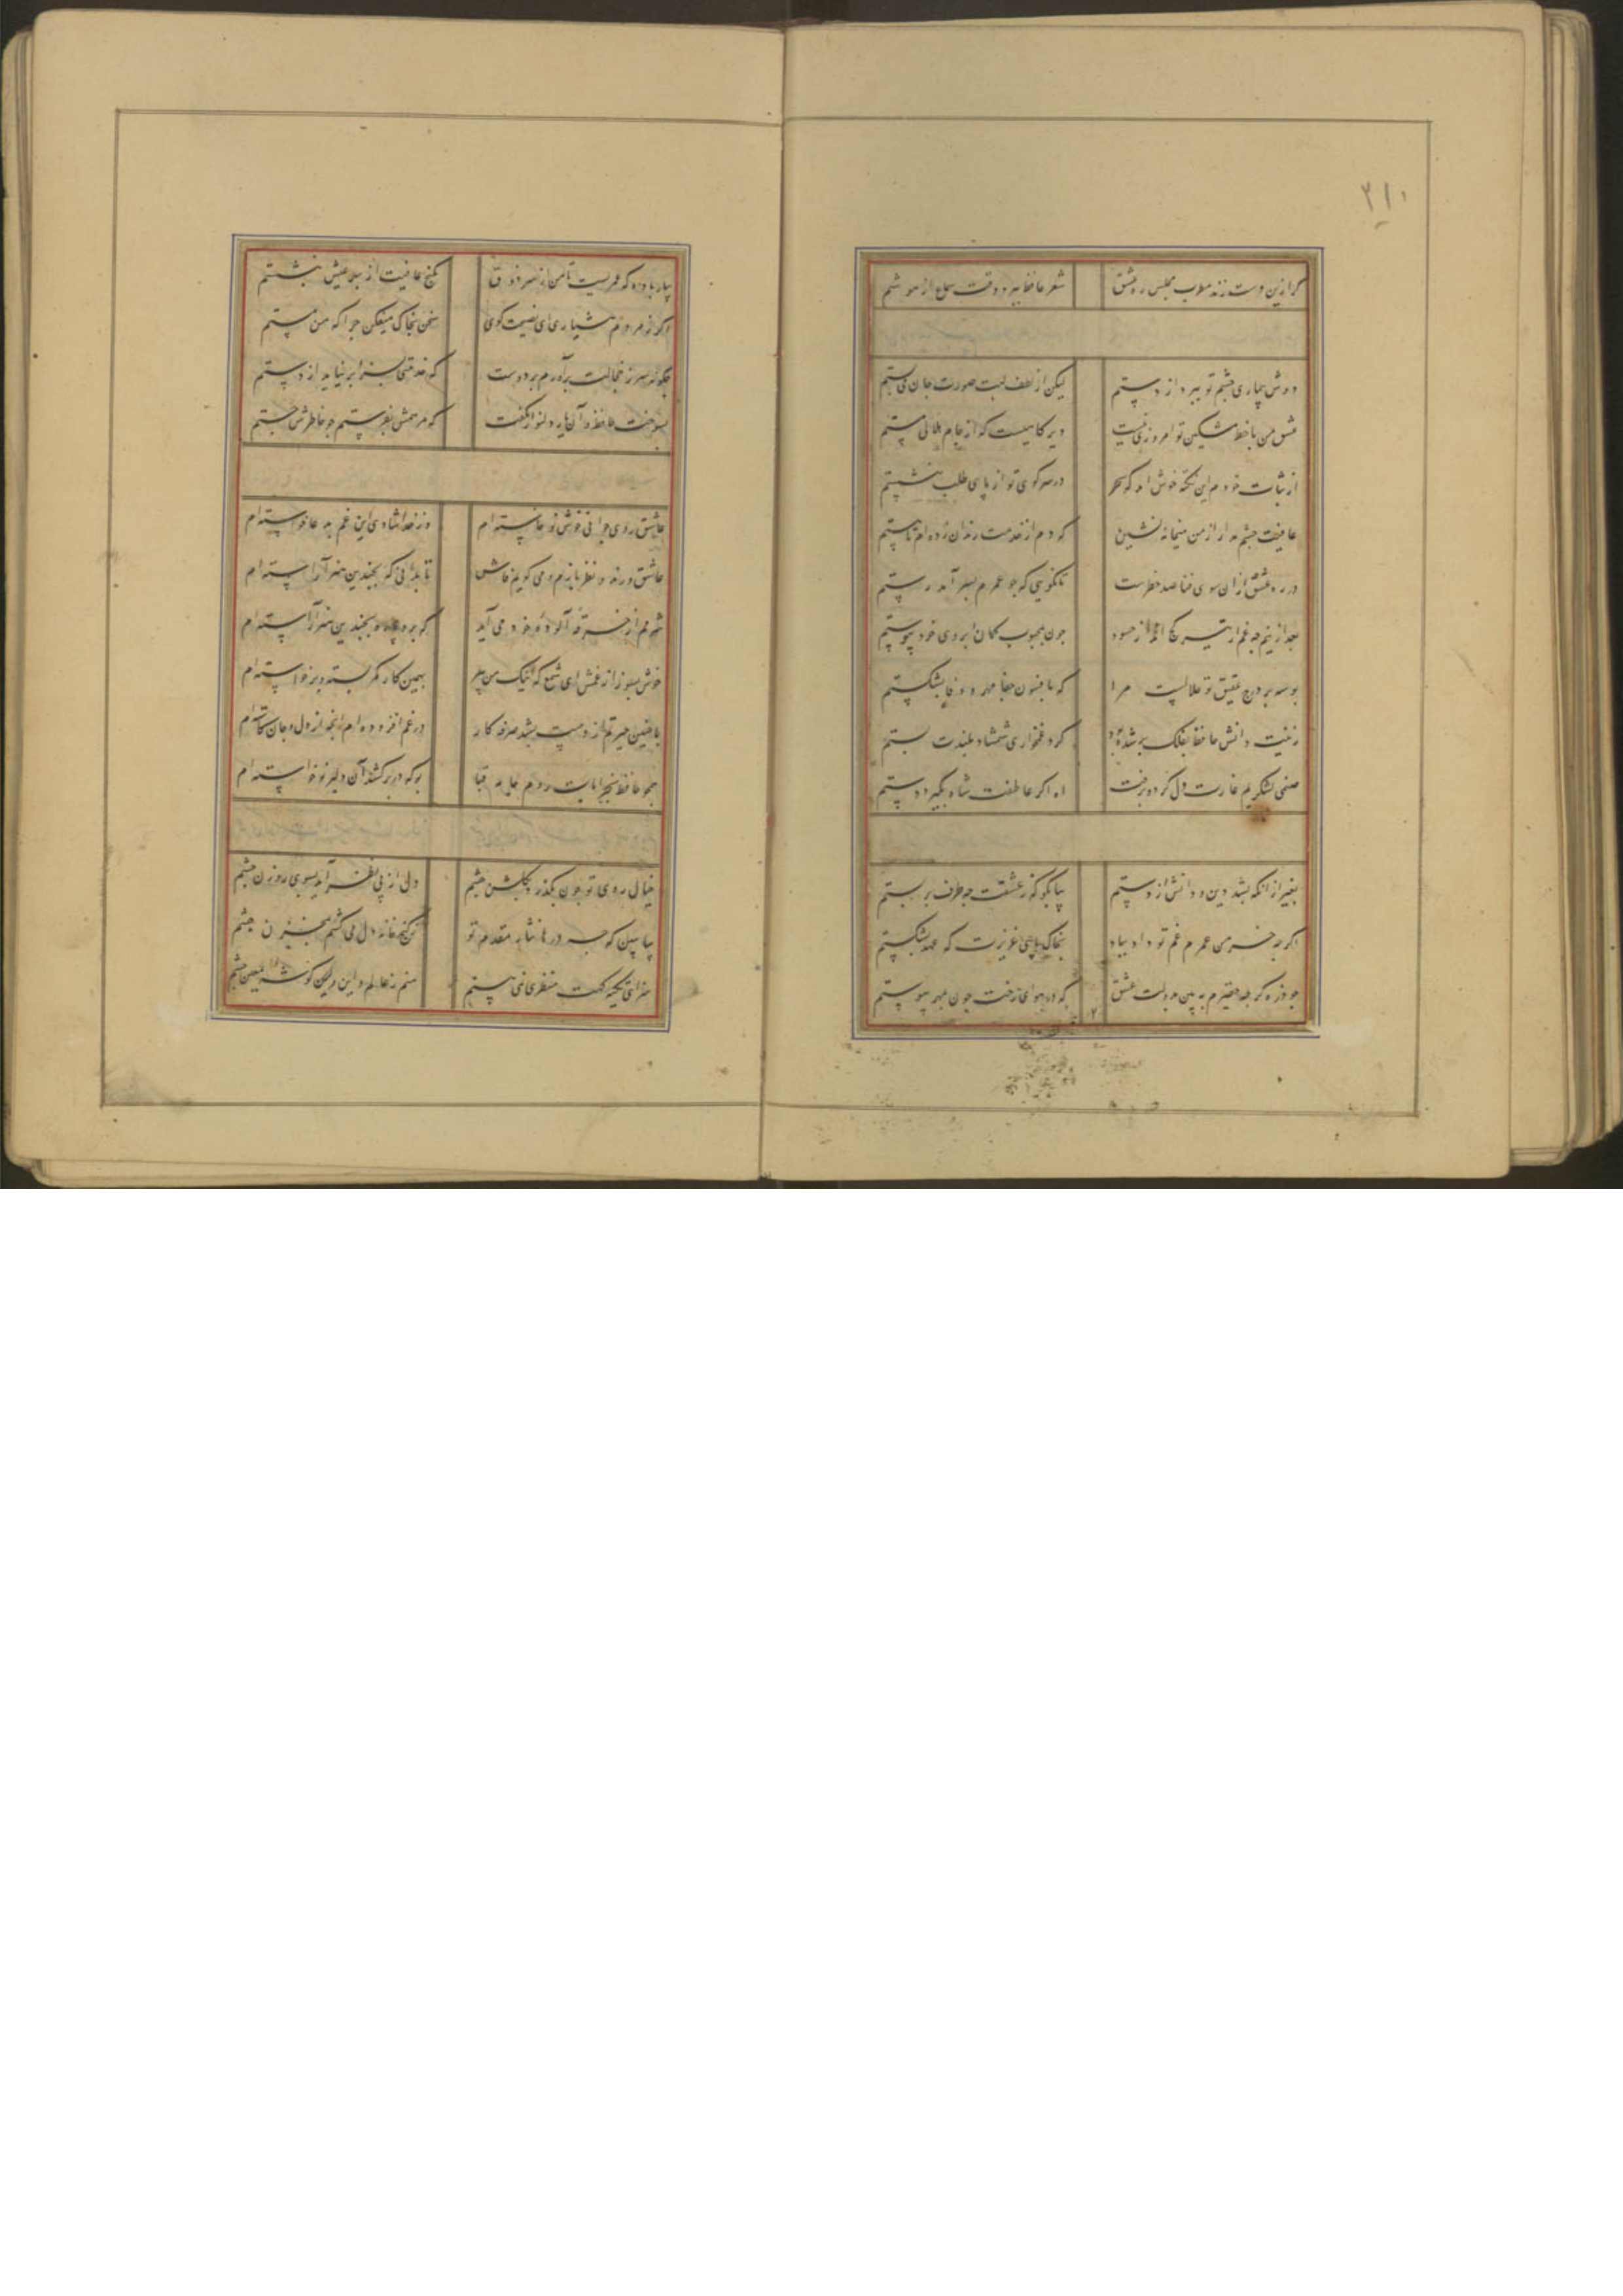 ۳۱۰
گر ازین دست زند مطرب مجلس ره عشق شعر حافظ ببرد وقت سماع از هوشم
دوش بیماری چشم تو ببرد از دستم لیکن از لطف لبت صورت جان می بستم
عشق من با خط مشکین تو امروزی نیست دیرگاهیست که از جام هلالی مستم
از ثبات خودم این نکته خوش آمد که بجور در سر کوی تو از پای طلب ننشستم
عافیت چشم مدار از من میخانه نشین که دم از خدمت رندان زده ام تا هستم
در ره عشق از آن سوی فنا صد خطرست تا نگویی که چو عمرم بسر آمد رستم
بعد ازینم چه غم از تیر کج انداز حسود چون بمحبوب کمان ابروی خود پیوستم
بوسه بر درج عقیق تو حلالست مرا که بافسون جفا مهر وفا بشکستم
رتبت دانش حافظ بفلک بر شده بود کرد غمخواری شمشاد بلندت پستم
صنمی لشکریم غارت دل کرد و برفت اه اگر عاطفت شاه نگیرد دستم
بغیر از انکه بشد دین و دانش از دستم بیا بگو که ز عشقت چه طرف بربستم
اگرچه خرمن عمرم غم تو داد بباد بخاک پای عزیزت که عهد نشکستم
چو ذره گرچه حقیرم ببین بدولت عشق که در هوای رخت چون بمهر پیوستم
بیار باده که عمریست تا من از سر ذوق بکنج عافیت از بهر عیش ننشستم
اگر ز مردم هشیاری ای نصیحت گوی سخن بخاک میفکن چرا که من مستم
چگونه سر ز خجالت برآورم بر دوست که خدمتی بسزا بر نیاید از دستم
بسوخت حافظ و آن یار دلنواز نگفت که مرهمش بفرستم چو خاطرش خستم
عاشق روی جوانی خوش نوخاسته ام وز خدا شادی این غم بدعا خواسته ام
عاشق و رند و نظر بازم و می گویم فاش تا بدانی که بچندین هنر آراسته ام
شرمم از خرقه آلوده خود می آید که برو پاره بچندین هنر آراسته ام
خوش بسوز از غمش ای شمع که اینک من نیز بهمین کار کمر بسته و برخاسته ام
با چنین حیرتم از دست بشد صرفه کار در غم افزوده ام انچ از دل و جان کاسته ام
همچو حافظ بخرابات روم جامه قبا بو که در بر کشد آن دلبر نوخاسته ام
خیال روی تو چون بگذرد بگلشن چشم دل از پی نظر آید بسوی روزن چشم
بیا ببین که درها نثار مقدم تو ز گنج خانه دل می کشم بمخزن چشم
سزای تکیه گهت منظری نمی بینم منم ز عالم و این گوشه معین چشم